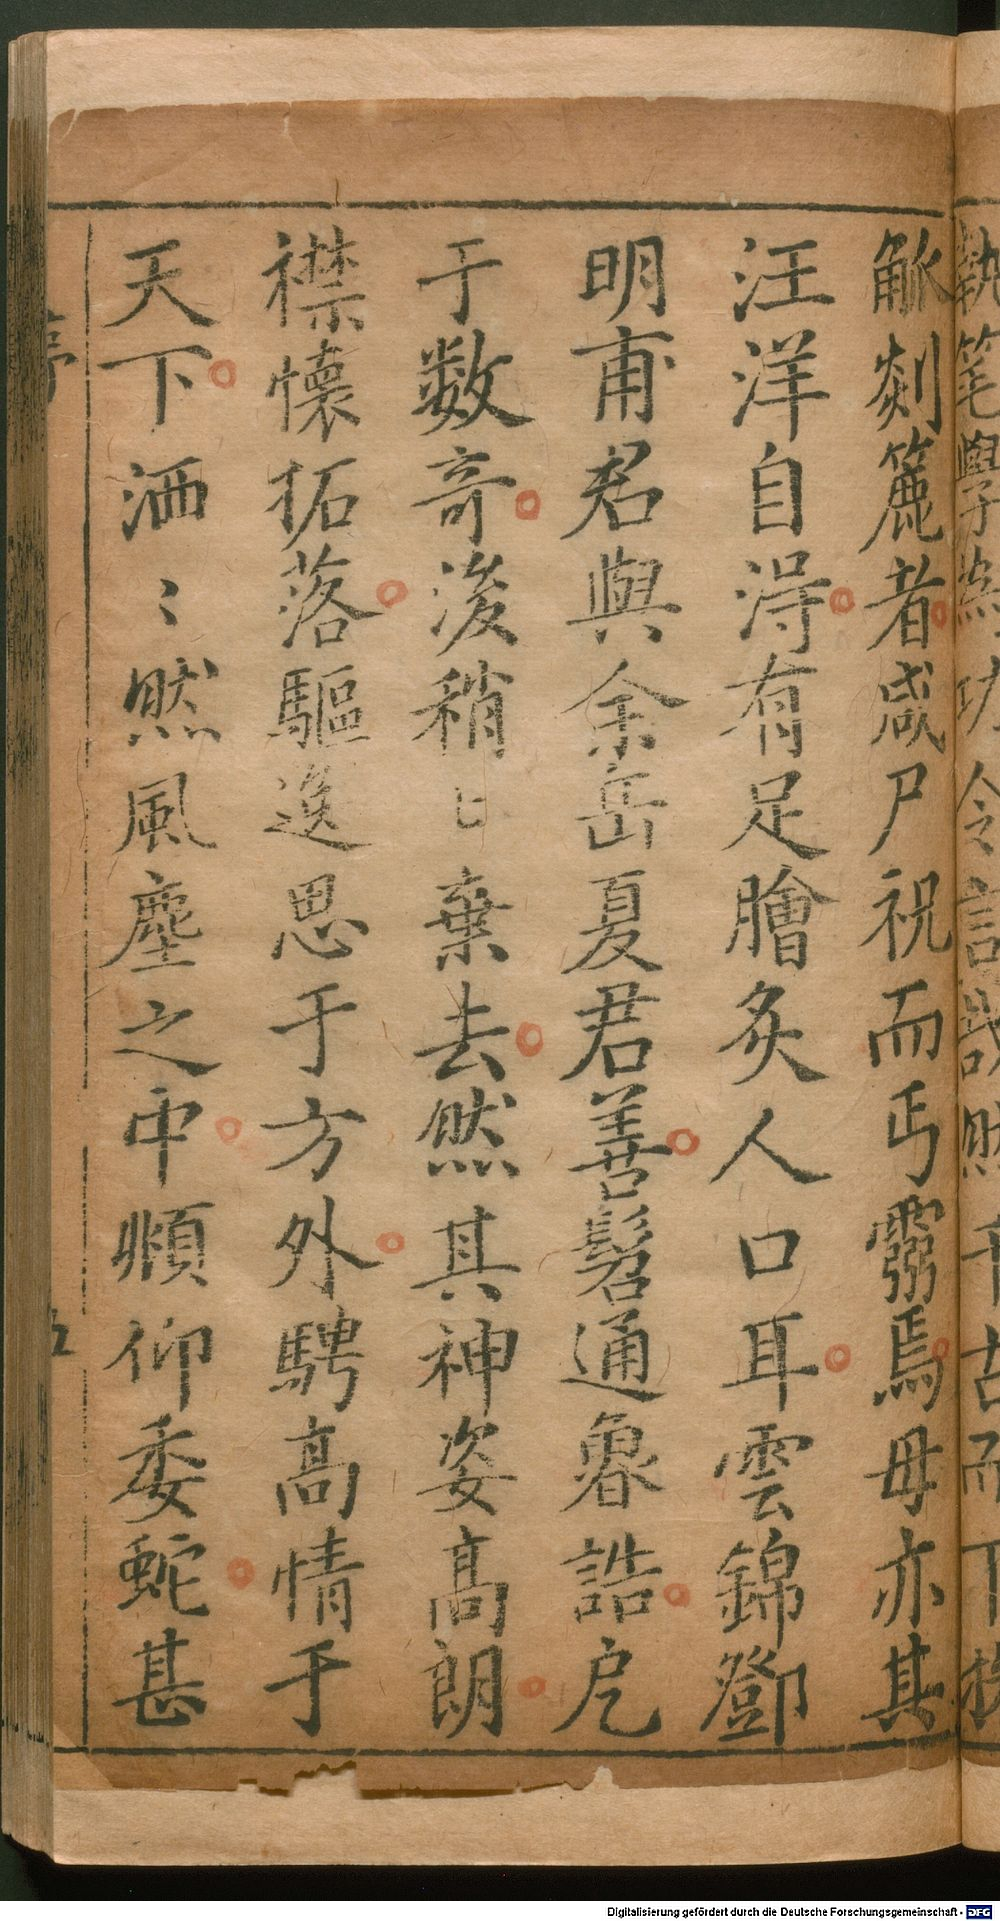 觚剡簏者咸尸祝而丐靈焉毋亦其
汪洋自淂有足膾炙人口耳雲錦鄧
明甫君與余岳夏君善髫通魯誥戹
于数竒浚稍〻棄去然其神姿高朗
襟懷拓落驅逸思于方外騁高情于
天下洒〻然風塵之中頫仰委蛇甚
Digitalisierung gefördert durch die Deutsche Forschungsgemeinschaft - DFG